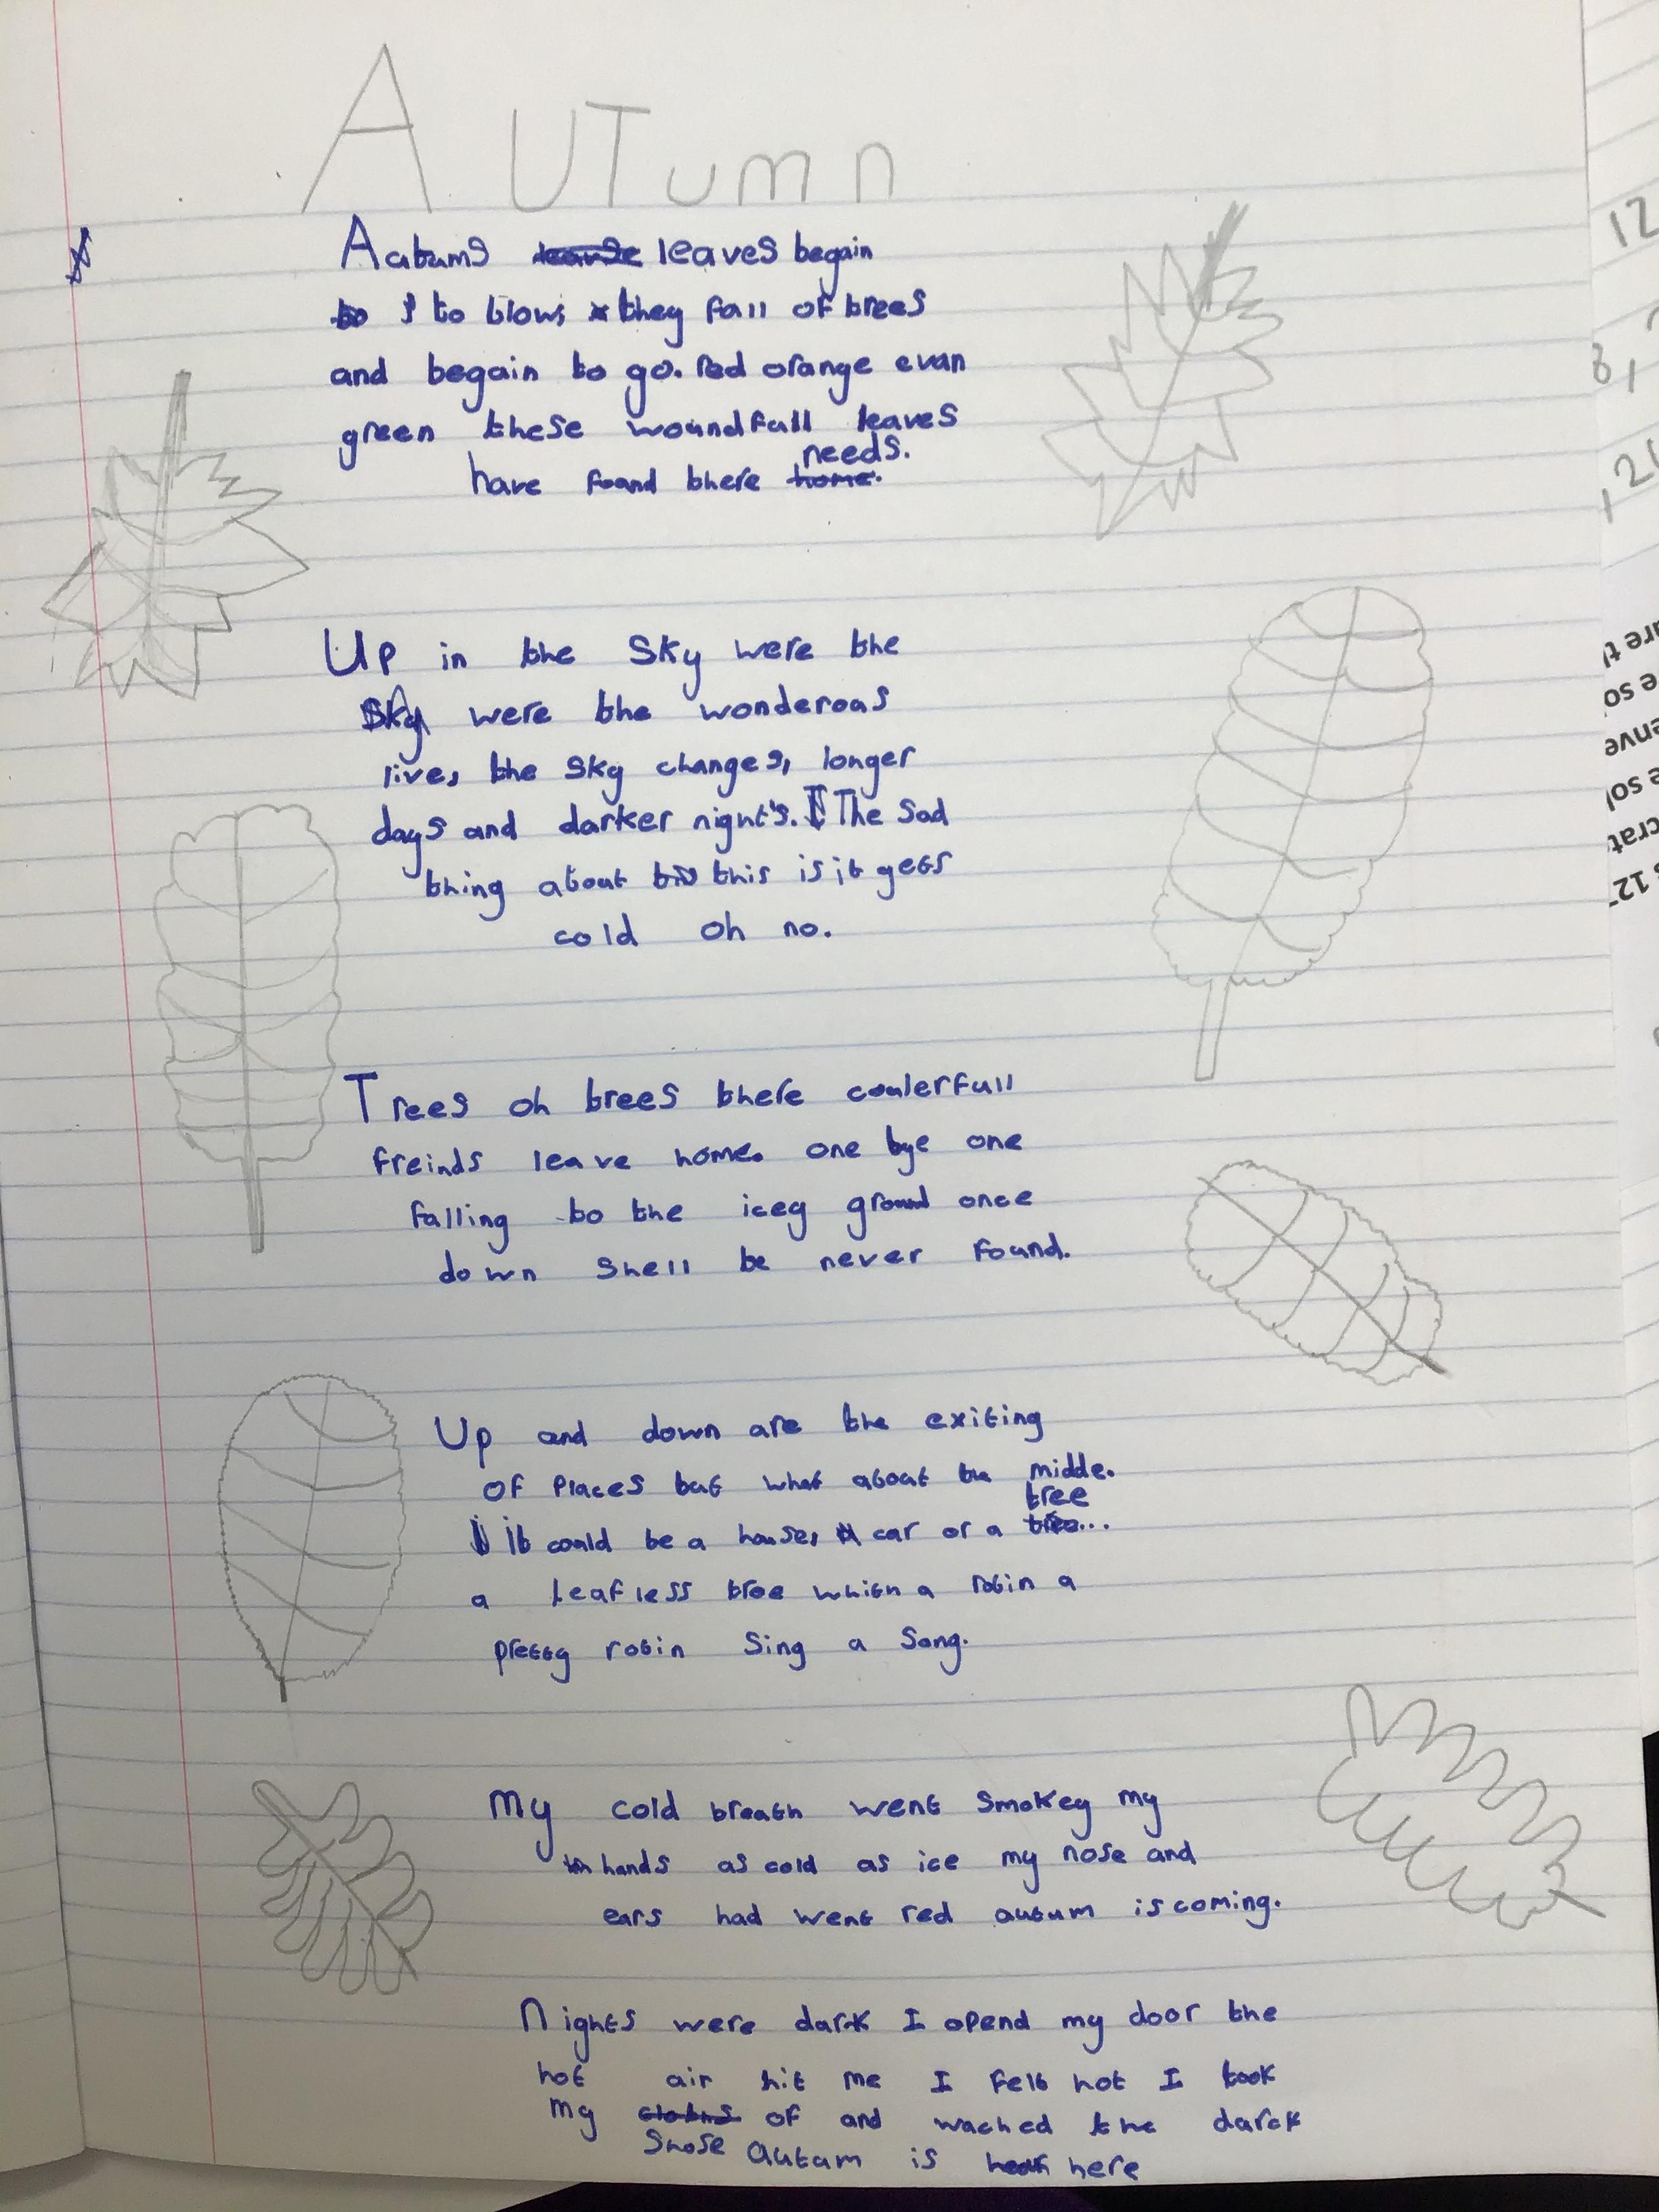 AUTumn
Autums leaves begain
to blow, they fall of trees
and begain to go. red orange evan
green these woundfull leaves
needs.
have found there home.
Up in the Sky were the
Sky were the wonderous
live, the sky changes, longer
days and darker night's. The Sad
thing about this is it gets
cold oh no.
Trees oh trees there coulerfull
freinds leave home. one bye one
falling to the icey ground once
down shell be never found.
Up and down are the exiting
of Places but what about the midde.
tree
it could be a house, car or a ...
a leafless tree which a robin a
pretty robin Sing a Song.
My cold breath went smokey my
hands as cold as ice my nose and
ears had went red autum is coming.
Nights were dark I opend my door the
hot air hit me I felt hot I took
my of and wached the darck
Shose autum is here
12
8,
,21
are t
e so
enve
e sol
crat
s 12